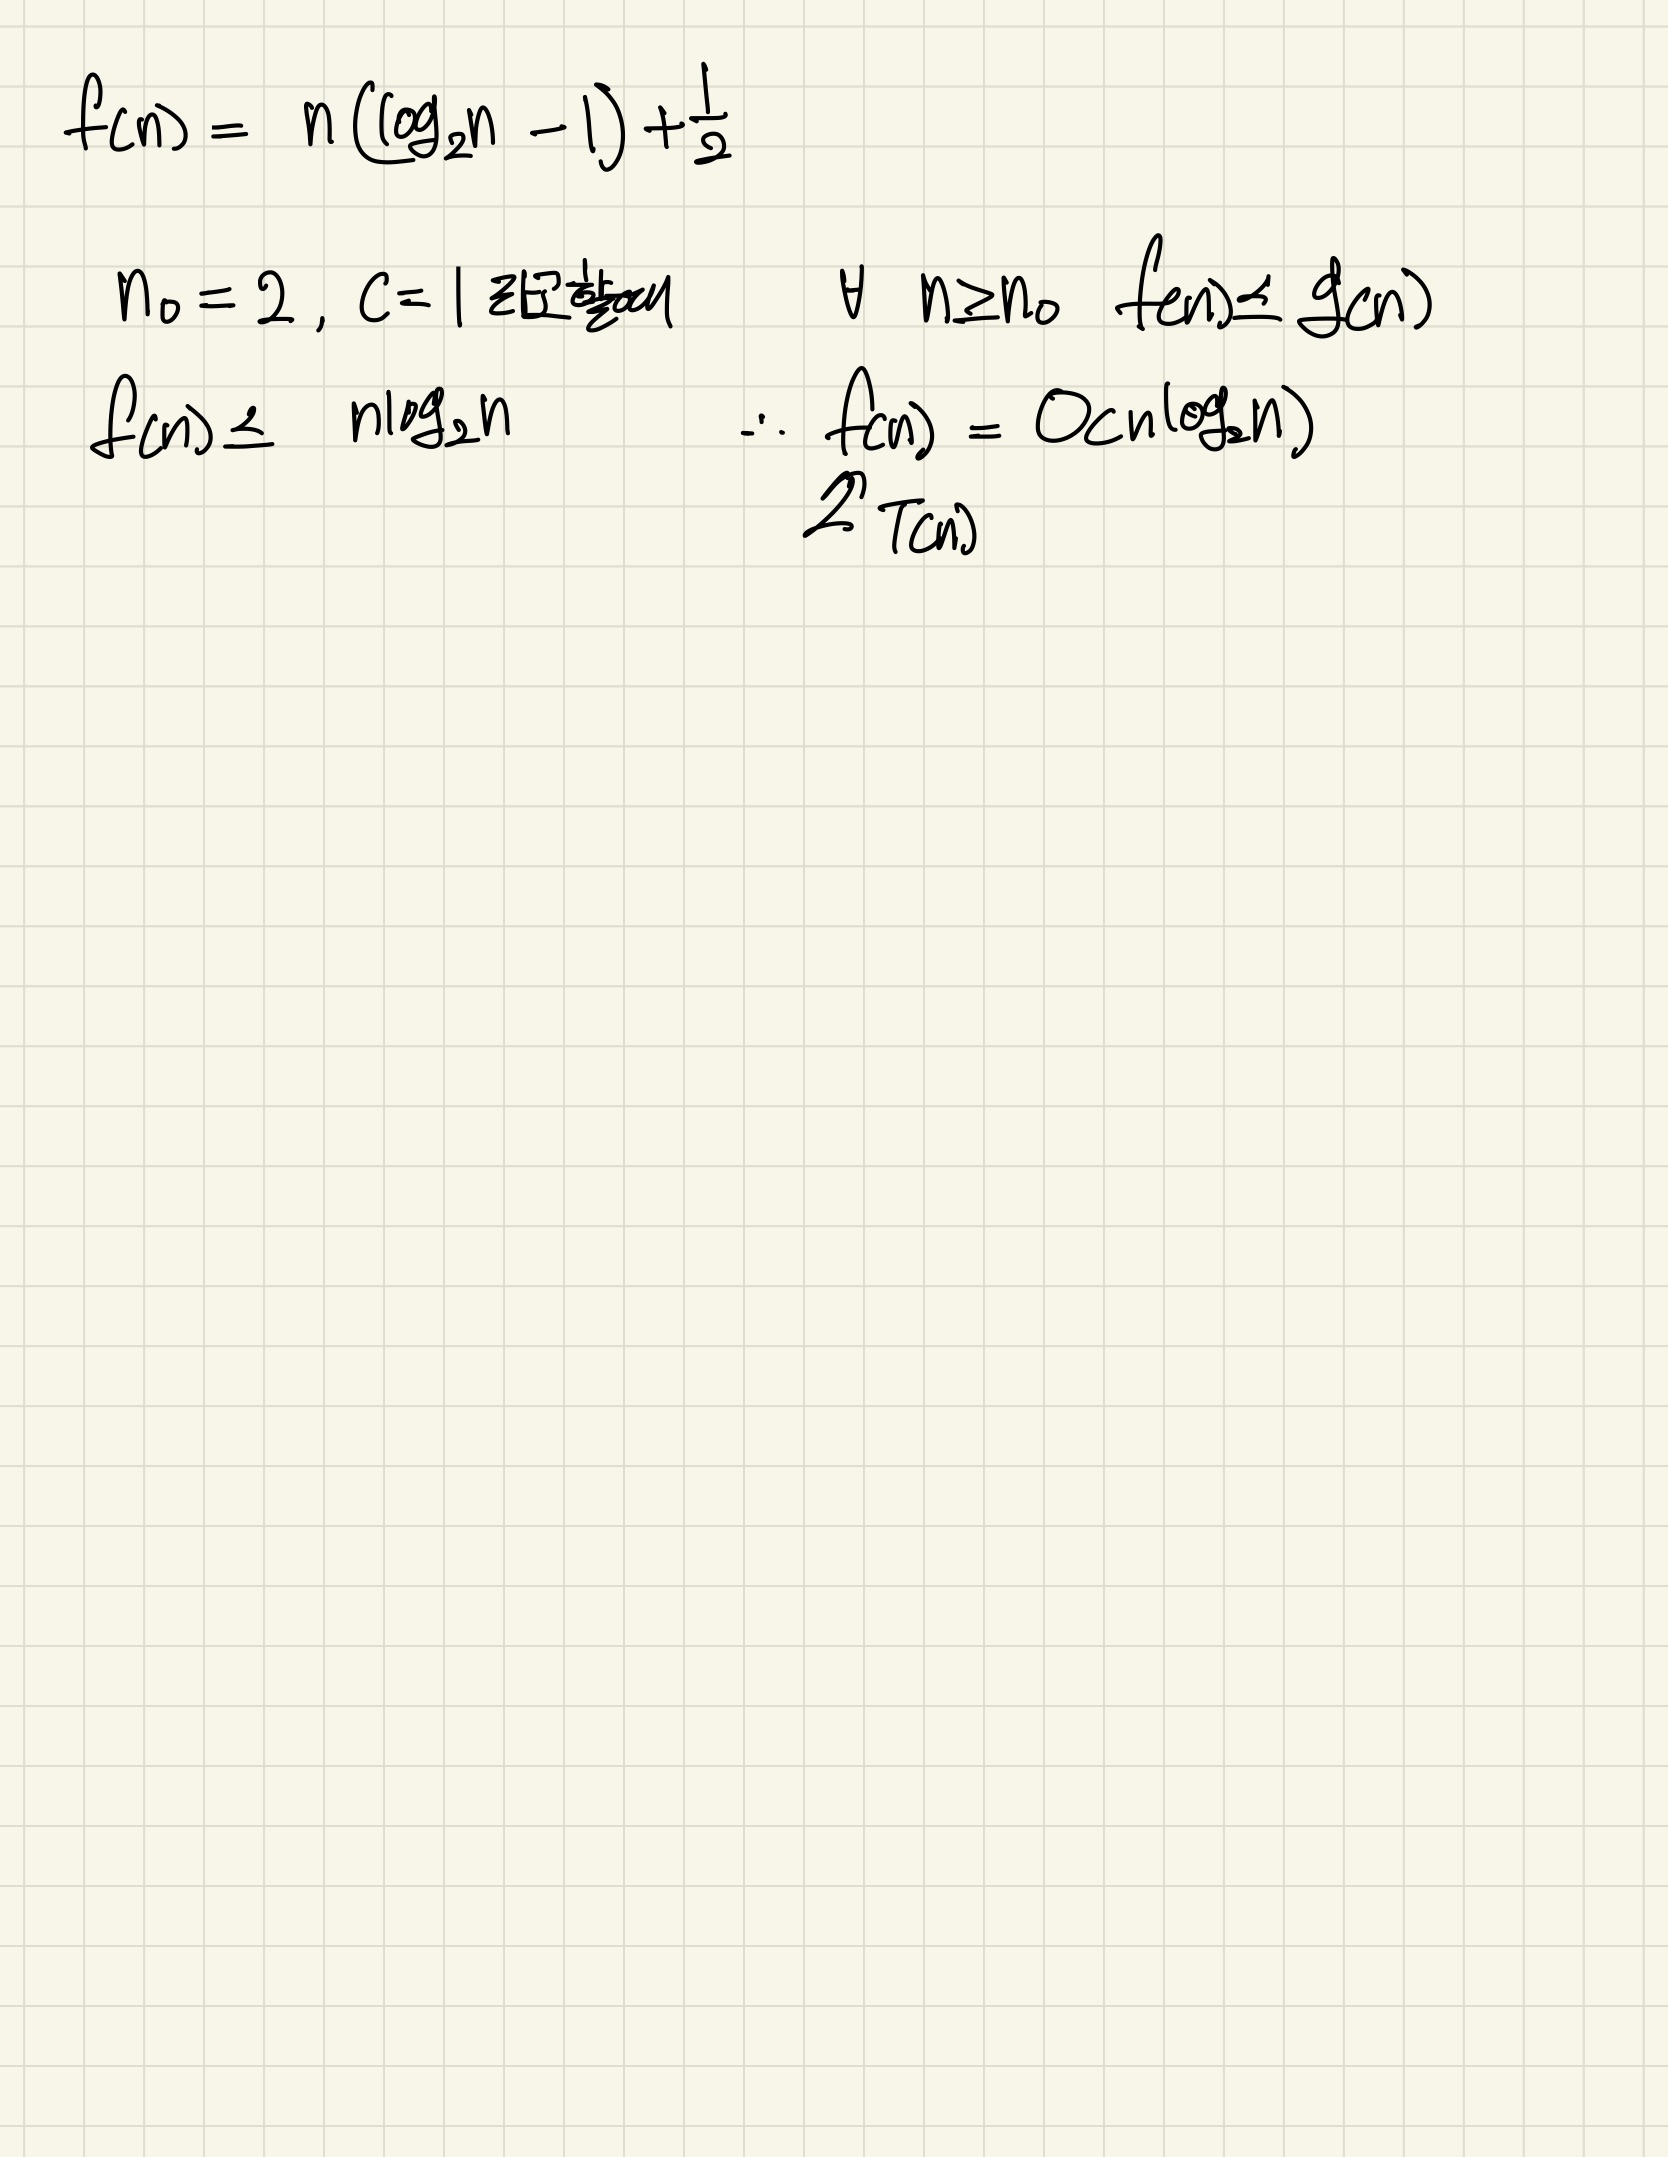 f(n) = n(log₂n - 1) + 1/2
n₀ = 2, c = 1 ∀ n ≥ n₀ f(n) ≤ g(n)
f(n) ≤ nlog₂n ∴ f(n) = O(nlog₂n)
T(n)